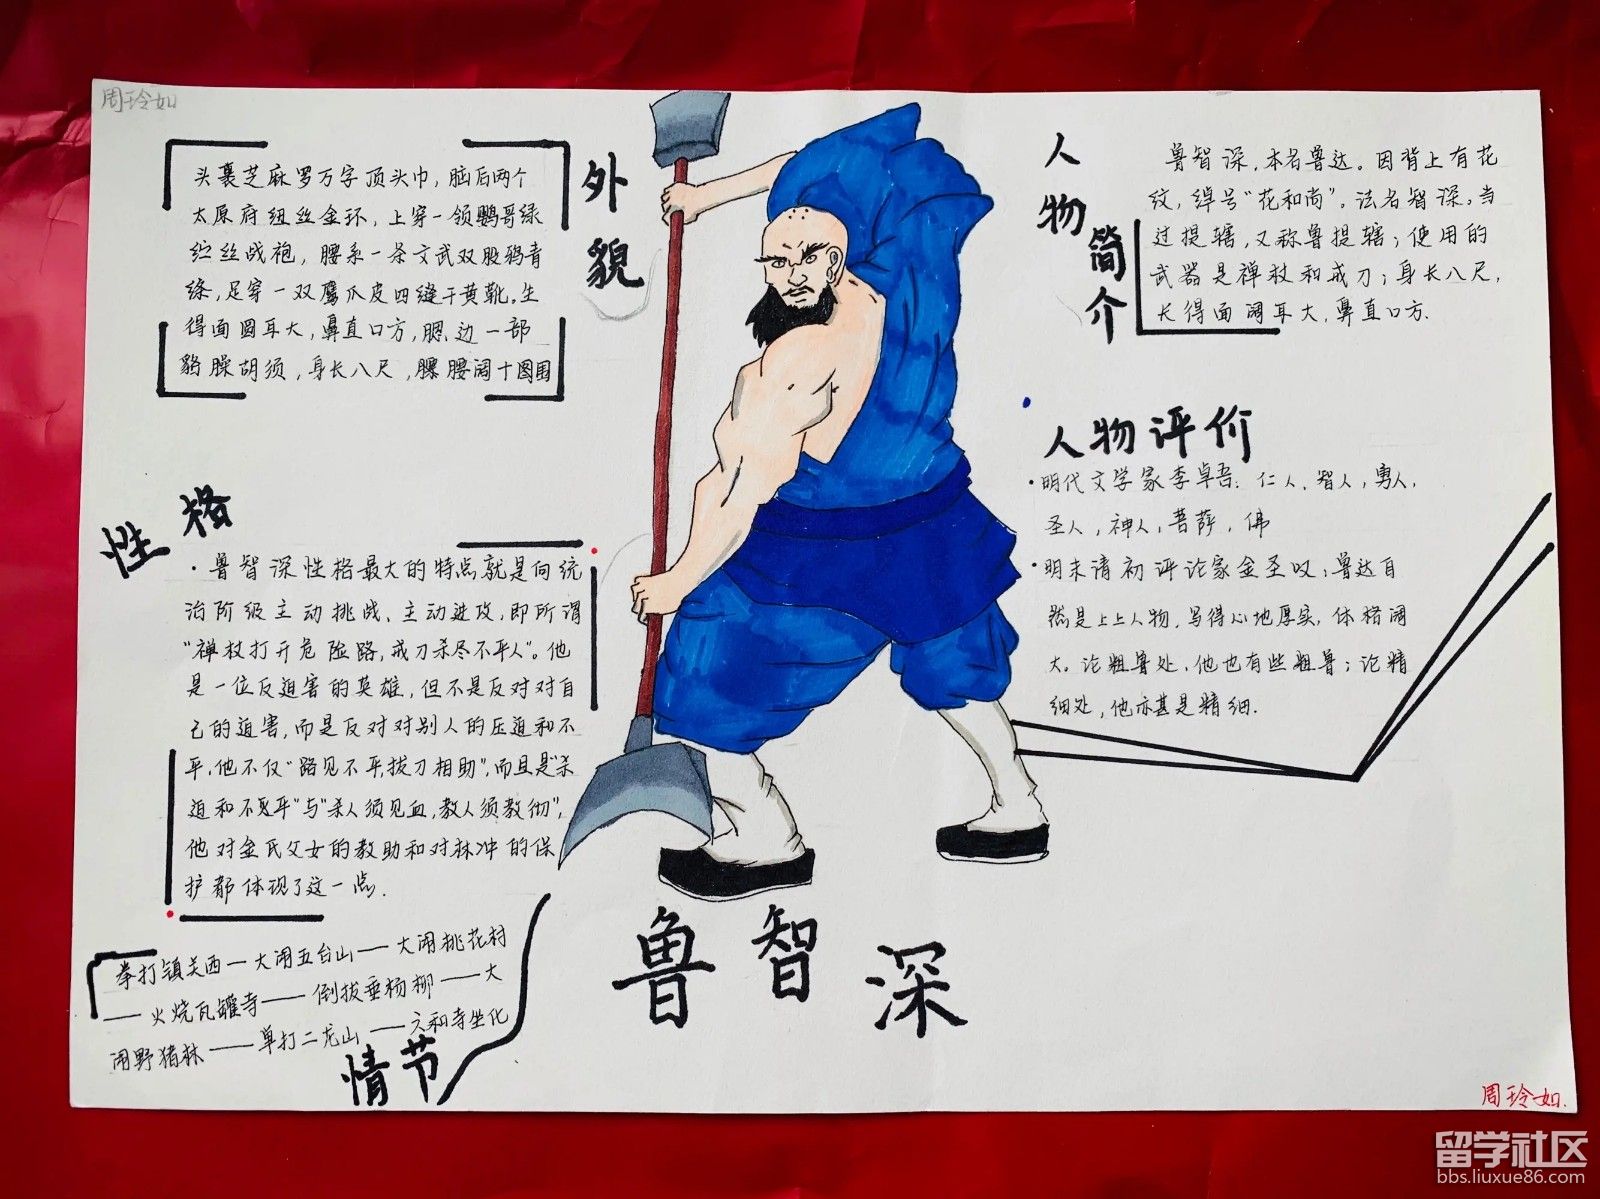 周玲如
外貌
头裹芝麻罗万字顶头巾，脑后两个
太原府纽丝金环，上穿一领鹦哥绿
纻丝战袍，腰系一条文武双股鸦青
绦，足穿一双鹰爪皮四缝干黄靴。生
得面圆耳大，鼻直口方，腮边一部
貉臊胡须，身长八尺，腰阔十围
人物简介
鲁智深，本名鲁达。因背上有花
纹，绰号“花和尚”。法名智深，当
过提辖，又称鲁提辖；使用的
武器是禅杖和戒刀；身长八尺，
长得面阔耳大，鼻直口方.
人物评价
·明代文学家李卓吾：仁人，智人，勇人，
圣人，神人，菩萨，佛
·明末请初评论家金圣叹：鲁达自
然是上上人物，写得心地厚实，体格阔
大。论粗鲁处，他也有些粗鲁；论精
细处，他亦甚是精细.
性格
·鲁智深性格最大的特点就是向统
治阶级主动挑战、主动进攻，即所谓
“禅杖打开危险路，戒刀杀尽不平人”。他
是一位反迫害的英雄，但不是反对对自
己的迫害，而是反对对别人的压迫和不
平，他不仅“路见不平，拔刀相助”，而且是“杀
迫和不平”与“杀人须见血，救人须救彻”，
他对金氏父女的救助和对林冲的保
护都体现了这一点.
拳打镇关西—大闹五台山—大闹桃花村
——火烧瓦罐寺——倒拔垂杨柳——大
闹野猪林——单打二龙山——六和寺坐化
情节
鲁智深
周玲如.
留学社区
bbs.liuxue86.com